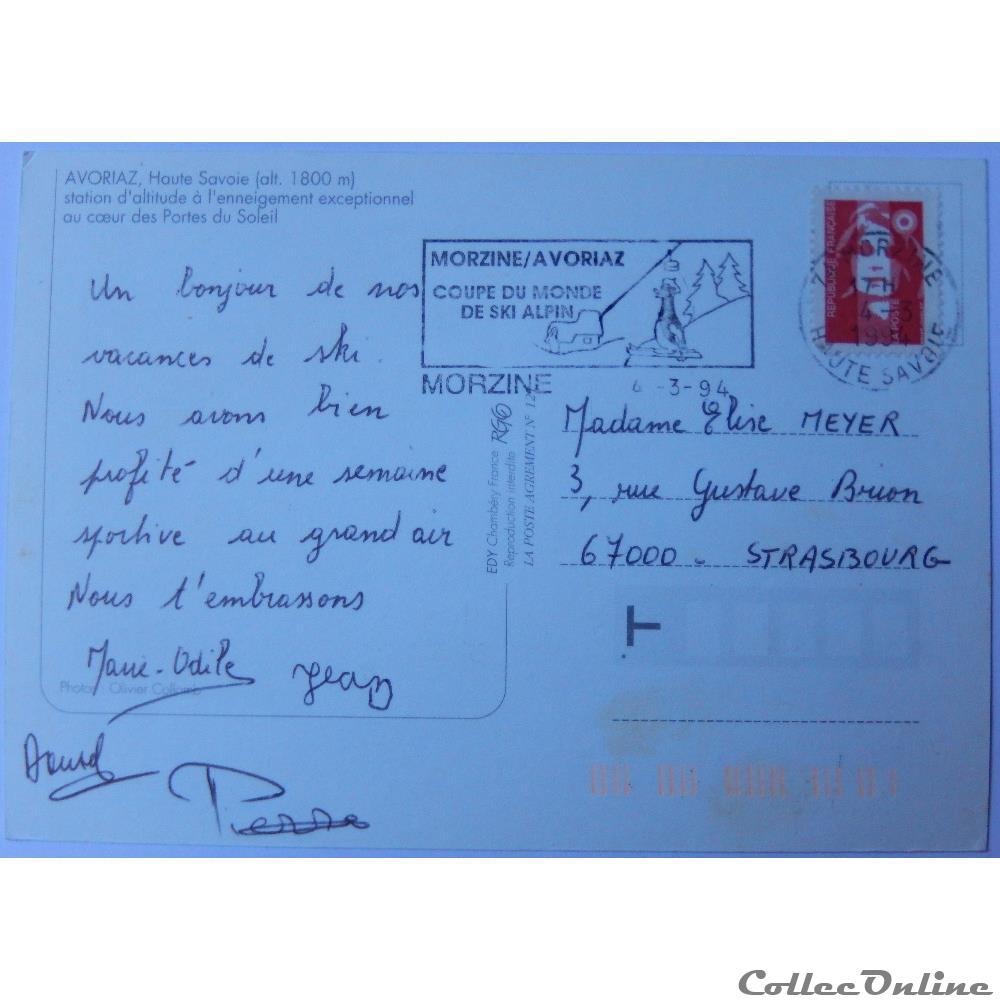 AVORIAZ, Haute Savoie (alt. 1800 m)
station d'altitude à l'enneigement exceptionnel
au cœur des Portes du Soleil
Un bonjour de nos
vacances de ski.
Nous avons bien
profité d'une semaine
sportive au grand air
Nous t'embrassons
Marie-Odile Jean
Photos : Olivier Collomb
Pierre
MORZINE/AVORIAZ
COUPE DU MONDE
DE SKI ALPIN
MORZINE
-3-94
REPUBLIQUE FRANÇAISE
LA POSTE
17H
1994
HAUTE SAVOIE
EDY Chambéry France
Reproduction interdite
LA POSTE AGREMENT N°
Madame Elise MEYER
3, rue Gustave Brion
67000 - STRASBOURG
T
CollecOnline